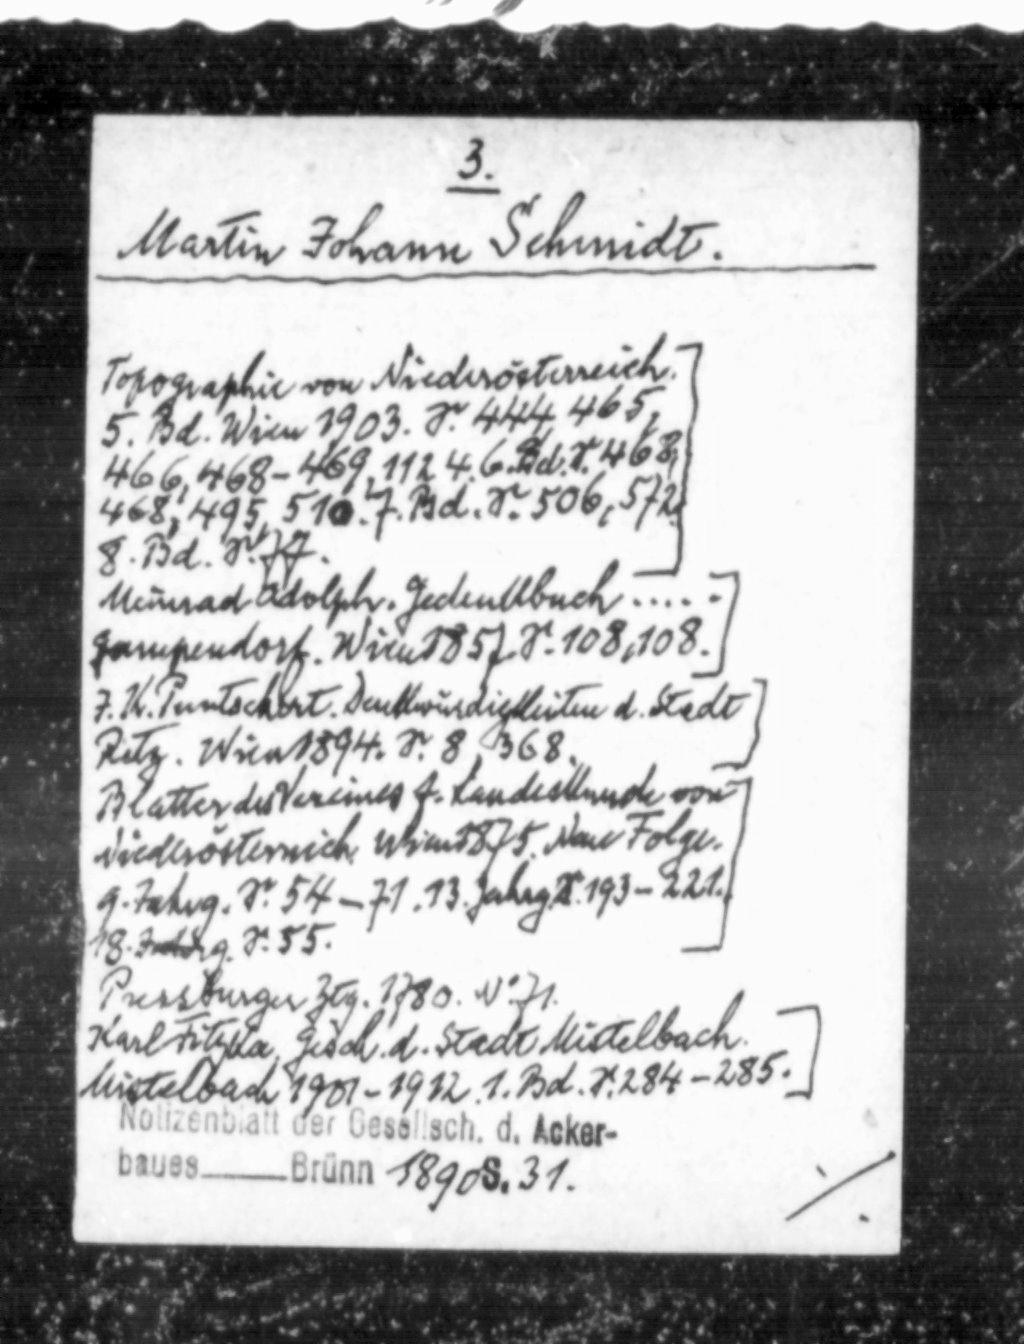 3.
Martin Johann Schmidt.
Topographie von Niederösterreich.
5. Bd. Wien 1903. S. 444, 465,
466, 468-469, 112 4. 6. Bd. S. 468,
468, 495, 510. 7. Bd. S. 506, 572.
8. Bd. S. 77.
Meinrad Adolph. Gedenkbuch .....
Gumpendorf. Wien 1857. S. 108, 108.
J. K. Puntschert. Denkwürdigkeiten d. Stadt
Retz. Wien 1894. S. 8, 368.
Blätter des Vereines f. Landeskunde von
Niederösterreich. Wien 1875. Neue Folge.
9. Jahrg. S. 54-71. 13. Jahrg. S. 193-221.
18. Jahrg. S. 55.
Pressburger Ztg. 1780. No 71.
Karl Fitzka, Gesch. d. Stadt Mistelbach.
Mistelbach 1901-1912. 1. Bd. S. 284-285.
Notizenblatt der Gesellsch. d. Acker-
baues Brünn 1890 S. 31.